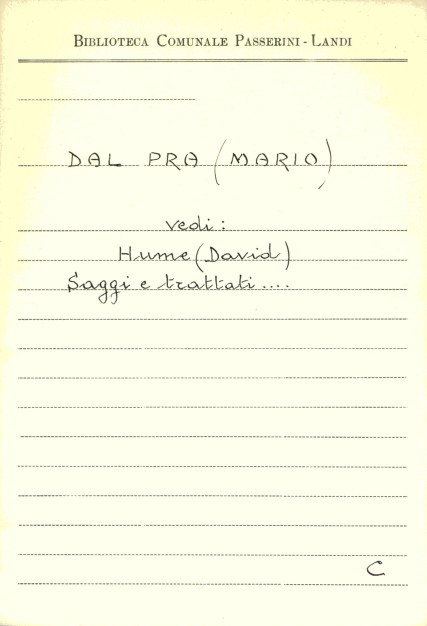 BIBLIOTECA COMUNALE PASSERINI - LANDI
DAL PRA (MARIO)
vedi:
Hume (David)
Saggi e trattati ....
C